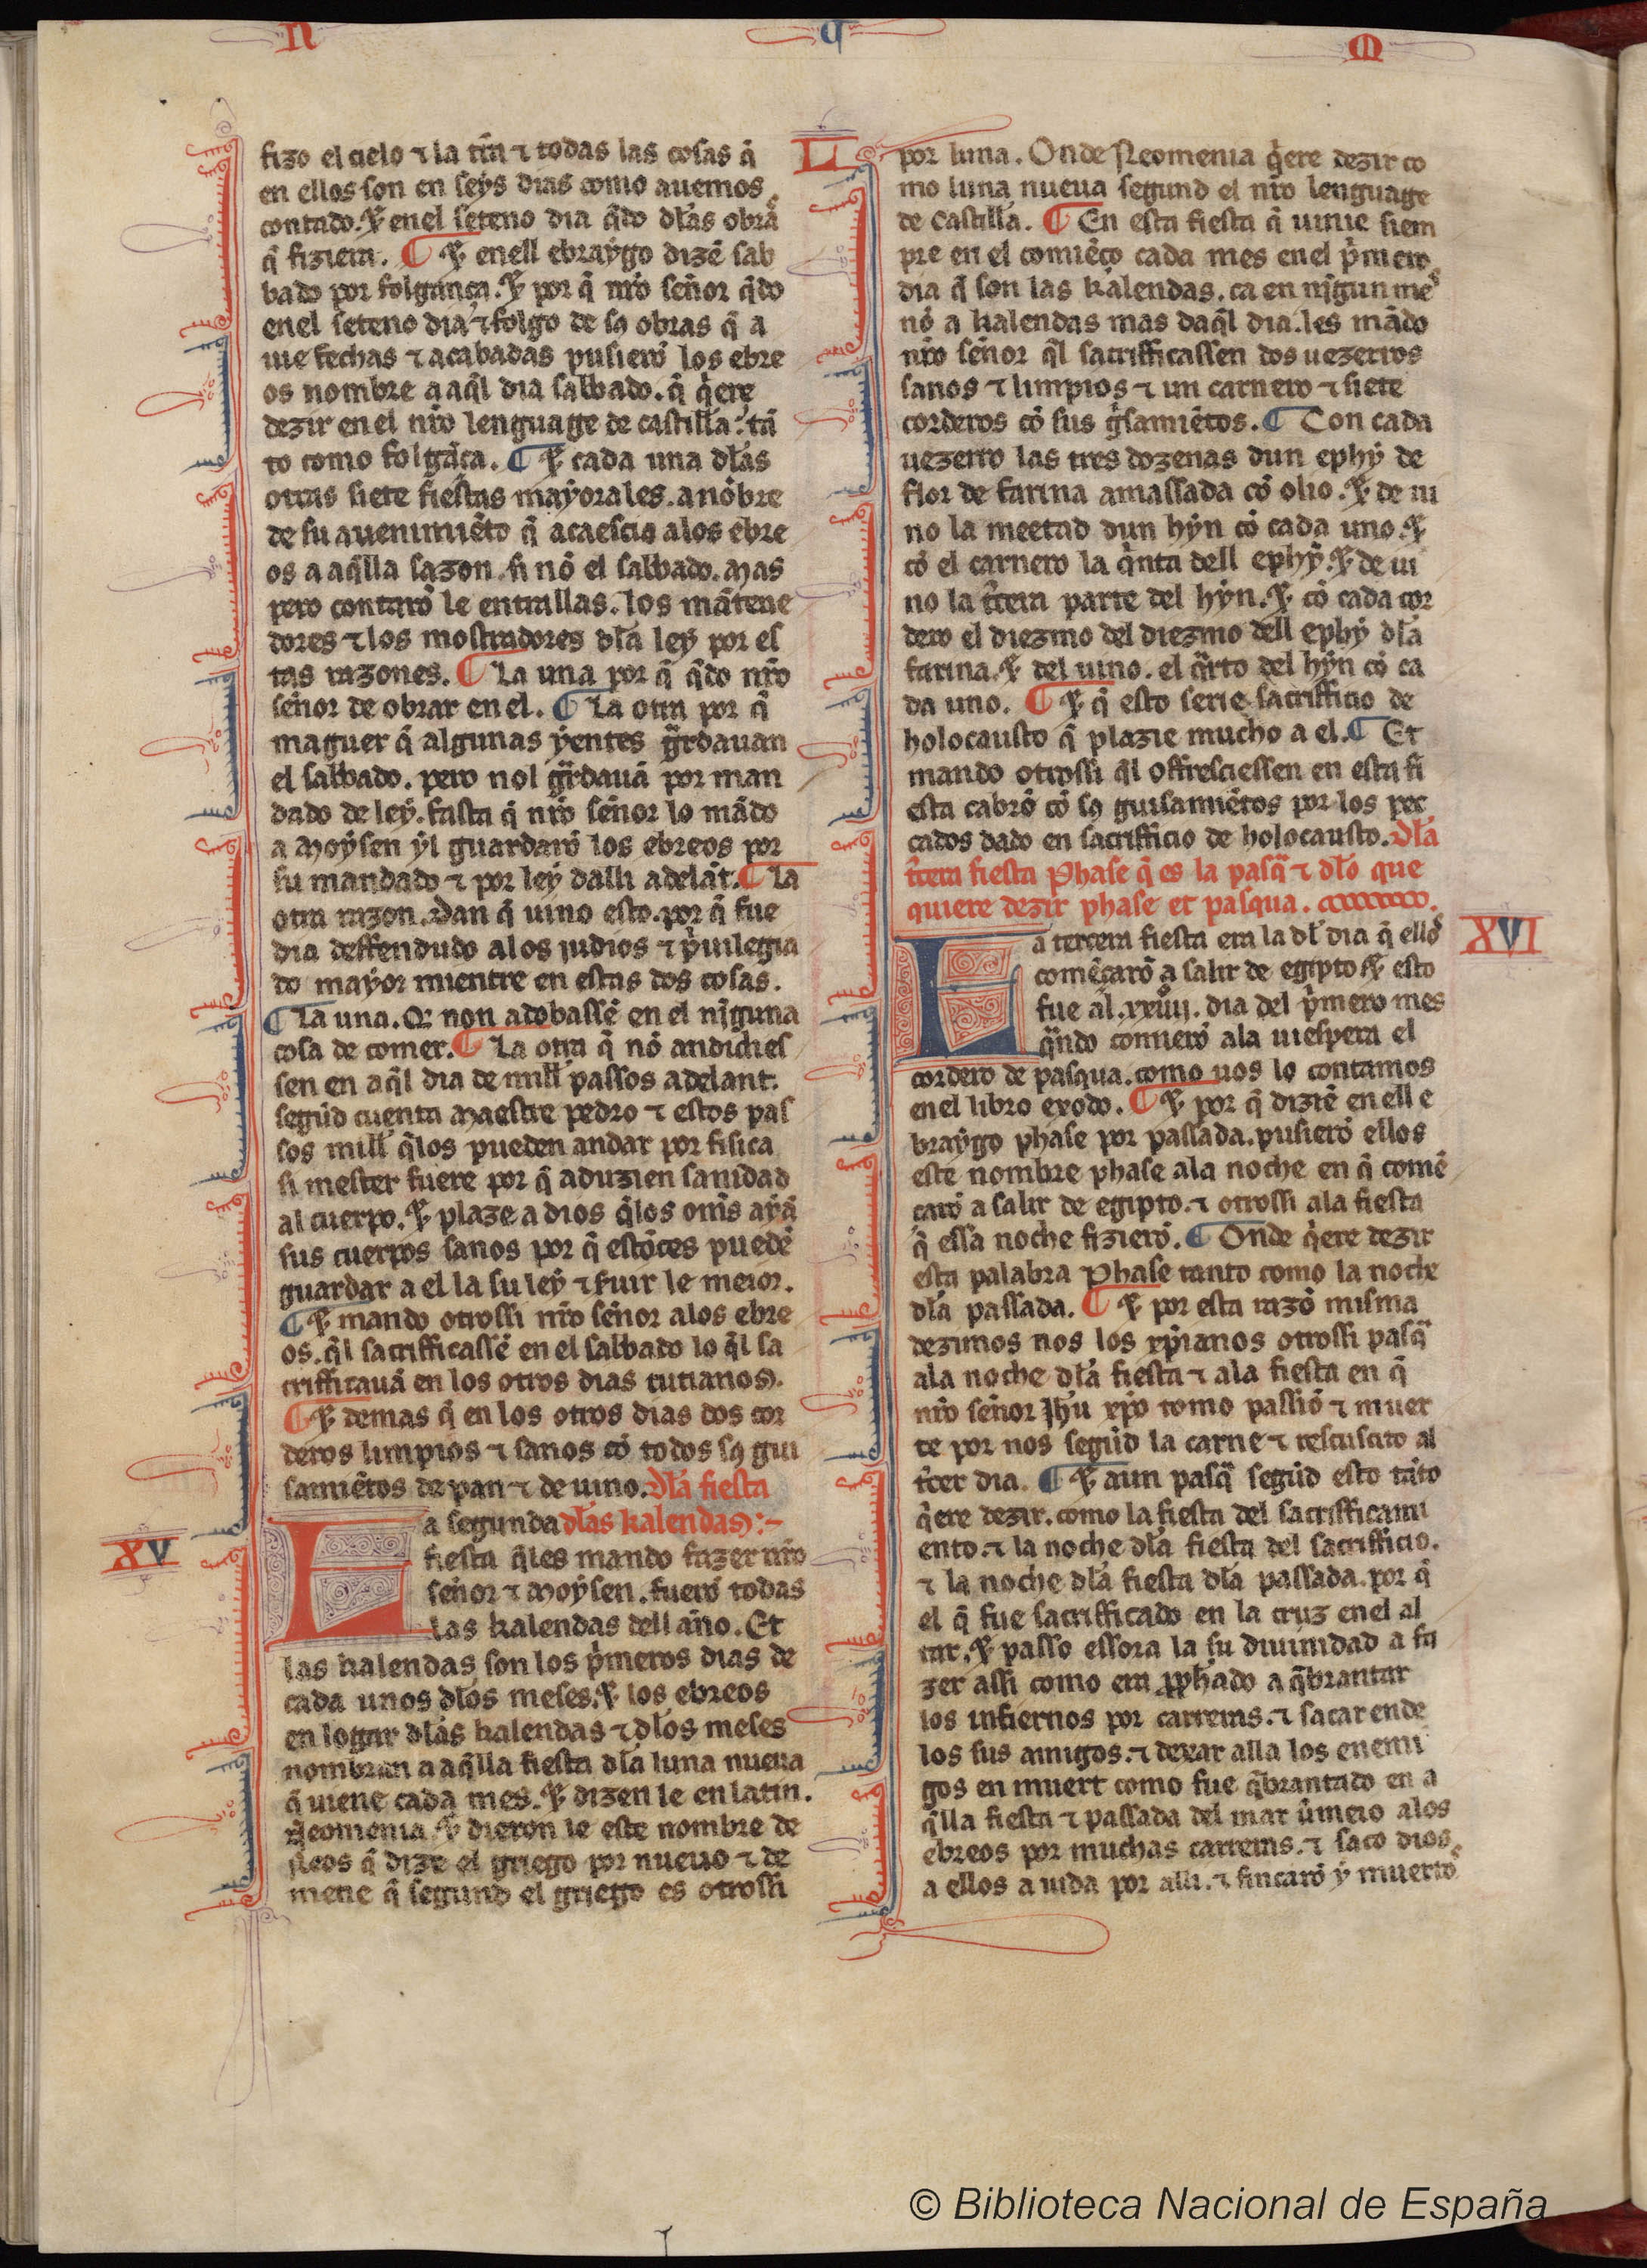 N
q
M
LI
fizo el cielo ⁊ la tr̃a ⁊ todas las cosas q̃
en ellos son en seys dias como auemos
contado. ⁊ en el seteno dia q̃do dl̃as obras
q̃ fiziera. ¶ ⁊ en ell ebraygo dizẽ sab
bado por folgança. ⁊ por q̃ nr̃o señor q̃do
en el seteno dia ⁊ folgo de sꝯ obras q̃ a
uie fechas ⁊ acabadas pusierõ los ebre
os nombre a aq̃l dia sabbado. q̃ q̃ere
dezir en el nr̃o lenguage de castilla: tã
to como folgãça. ¶ ⁊ cada una dl̃as
otras siete fiestas mayorales. a nõbre
de su auenimiẽto q̃ acaescio alos ebre
os a aq̃lla sazon. si nõ el sabbado. Mas
pero contarõ le entrallas. los mãtene
dores ⁊ los mostradores dl̃a ley por es
tas razones. ¶ La una por q̃ q̃do nr̃o
señor de obrar en el. ¶ La otra por q̃
maguer q̃ algunas yentes gr̃dauan
el sabbado. pero nol gr̃dauã por man
dado de ley. fasta q̃ nr̃o señor lo mãdo
a Moysen yl guardarõ los ebreos por
su mandado ⁊ por ley dalli adelãt. ¶ La
otra razon. Dan q̃ uino esto. por q̃ fue
dia deffendudo alos judios ⁊ p̃uilegia
do mayor mientre en estas dos cosas.
¶ La una. Q̃ non adobassẽ en el nj̃guna
cosa de comer. ¶ La otra q̃ nõ andidies
sen en aq̃l dia de mill passos adelant.
segũd cuenta Maestre pedro ⁊ estos pas
sos mill q̃los pueden andar por fisica
si mester fuere por q̃ aduzien sanidad
al cuerpo. ⁊ plaze a dios q̃los om̃s ayã
sus cuerpos sanos por q̃ estõces puedẽ
guardar a el la su ley ⁊ suir le meior.
¶ ⁊ mando otrossi nr̃o señor alos ebre
os. q̃l sacrifficassẽ en el sabbado lo q̃l sa
crifficauã en los otros dias cutianos.
¶ ⁊ demas q̃ en los otros dias dos cor
deros limpios ⁊ sanos cõ todos sꝯ gui
samiẽtos de pan ⁊ de uino. Dl̃a fiesta
La segunda dl̃as kalendas:-
XV
fiesta q̃les mando fazer nr̃o
señor ⁊ Moysen. fuerõ todas
las kalendas dell año. Et
las kalendas son los p̃meros dias de
cada unos dl̃os meses. ⁊ los ebreos
en logar dl̃as kalendas ⁊ dl̃os meses
nombran a aq̃lla fiesta dl̃a luna nueua
q̃ uiene cada mes. ⁊ dizen le en latin.
Neomenia. ⁊ dieron le este nombre de
Neos q̃ dize el griego por nueuo ⁊ de
mene q̃ segund el griego es otrossi
por luna. Onde Neomenia q̃ere dezir co
mo luna nueua segund el nr̃o lenguage
de Castilla. ¶ En esta fiesta q̃ uinie siem
pre en el comiẽço cada mes en el p̃mero
dia q̃ son las kalendas. ca en nj̃gun mes
nõ a kalendas mas daq̃l dia. les mãdo
nr̃o señor q̃l sacrifficassen dos uezerros
sanos ⁊ limpios ⁊ un carnero ⁊ siete
corderos cõ sus gĩsamiẽtos. ¶ Con cada
uezerro las tres dozenas dun ephy de
flor de farina amassada cõ olio. ⁊ de ui
no la meetad dun hyn cõ cada uno. ⁊
cõ el carnero la q̃nta dell ephy. ⁊ de ui
no la t̃cera parte del hyn. ⁊ cõ cada cor
dero el diezmo del diezmo dell ephy dl̃a
farina. ⁊ del uino. el q̃rto del hyn cõ ca
da uno. ¶ ⁊ q̃ esto serie sacrifficio de
holocausto q̃ plazie mucho a el. ¶ Et
mando otrossi q̃l offresciessen en esta fi
esta cabrõ cõ sꝯ guisamiẽtos por los pec
cados dado en sacrifficio de holocausto. Dl̃a
t̃cera fiesta Phase q̃ es la pasq̃ ⁊ dl̃o que
quiere dezir phase et pasqua.
XVI
La tercera fiesta era la dl̃ dia q̃ ellos
comẽçarõ a salir de egipto ⁊ esto
fue al. xxiiij. dia del p̃mero mes
q̃ndo comierõ ala uiespera el
cordero de pasqua. como uos lo contamos
en el libro exodo. ¶ ⁊ por q̃ diziẽ en ell e
braygo phase por passada. pusierõ ellos
este nombre phase ala noche en q̃ comẽ
çarõ a salir de egipto. ⁊ otrossi ala fiesta
q̃ essa noche fizierõ. ¶ Onde q̃ere dezir
esta palabra Phase tanto como la noche
dl̃a passada. ¶ ⁊ por esta razõ misma
dezimos nos los xp̃ianos otrossi pasq̃
ala noche dl̃a fiesta ⁊ ala fiesta en q̃
nr̃o señor Jhũ xp̃o tomo passiõ ⁊ muer
te por nos segũd la carne ⁊ rescuscito al
t̃cer dia. ¶ ⁊ aun pasq̃ segũd esto tãto
q̃ere dezir. como la fiesta del sacrifficami
ento. ⁊ la noche dl̃a fiesta del sacrifficio.
⁊ la noche dl̃a fiesta dl̃a passada. por q̃
el q̃ fue sacrifficado en la cruz en el al
tar. ⁊ passo essora la su diuinidad a fa
zer assi como era ꝓphado a q̃brantar
los infiernos por carreras. ⁊ sacar ende
los sus amigos. ⁊ dexar alla los enemi
gos en muert como fue q̃brantado en a
q̃lla fiesta ⁊ passada del mar ũmeio alos
ebreos por muchas carreras. ⁊ saco dios
a ellos a uida por alli. ⁊ fincarõ y muertos
© Biblioteca Nacional de España